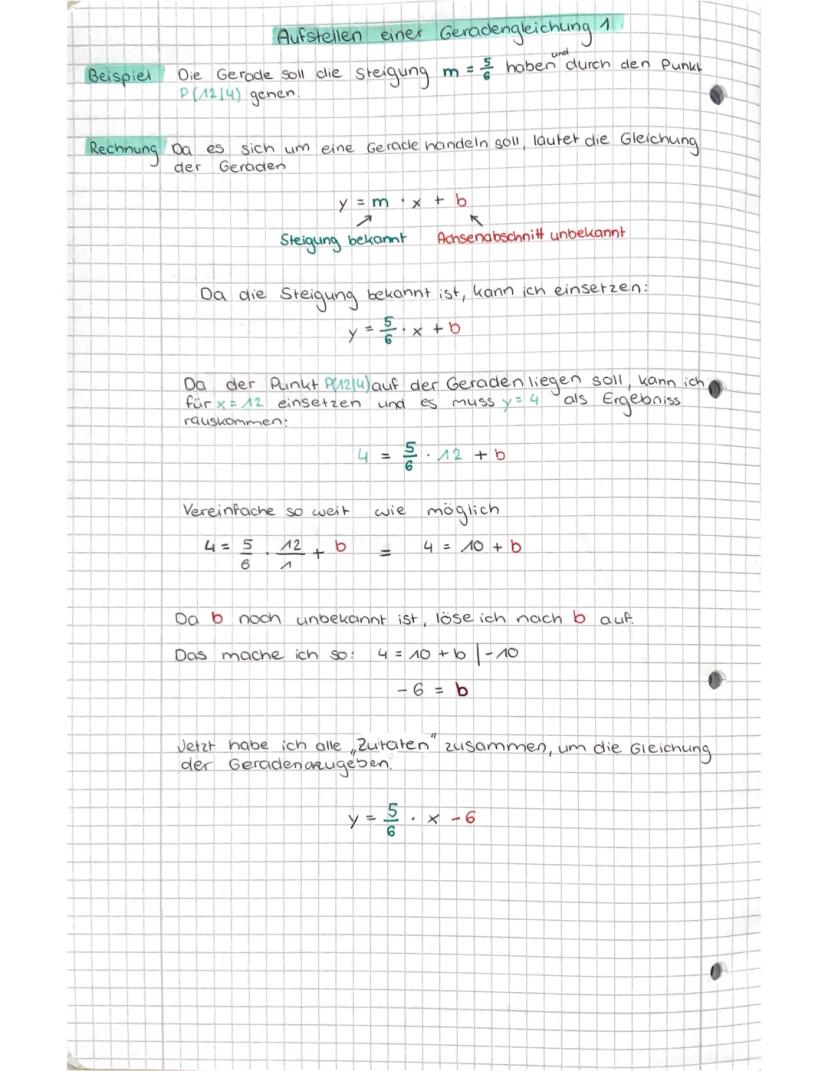 Aufstellen einer Geradengleichung 1
Beispiel Die Gerade soll die Steigung m = 5/6 haben und durch den Punkt
P(12|4) gehen.
Rechnung Da es sich um eine Gerade handeln soll, lautet die Gleichung
der Geraden
y = m · x + b
Steigung bekannt Achsenabschnitt unbekannt
Da die Steigung bekannt ist, kann ich einsetzen:
y = 5/6 · x + b
Da der Punkt P(12|4) auf der Geraden liegen soll, kann ich
für x = 12 einsetzen und es muss y = 4 als Ergebniss
rauskommen:
4 = 5/6 · 12 + b
Vereinfache so weit wie möglich
4 = 5/6 · 12/1 + b = 4 = 10 + b
Da b noch unbekannt ist, löse ich nach b auf.
Das mache ich so: 4 = 10 + b |-10
-6 = b
Jetzt habe ich alle „Zutaten" zusammen, um die Gleichung
der Geraden anzugeben.
y = 5/6 · x - 6